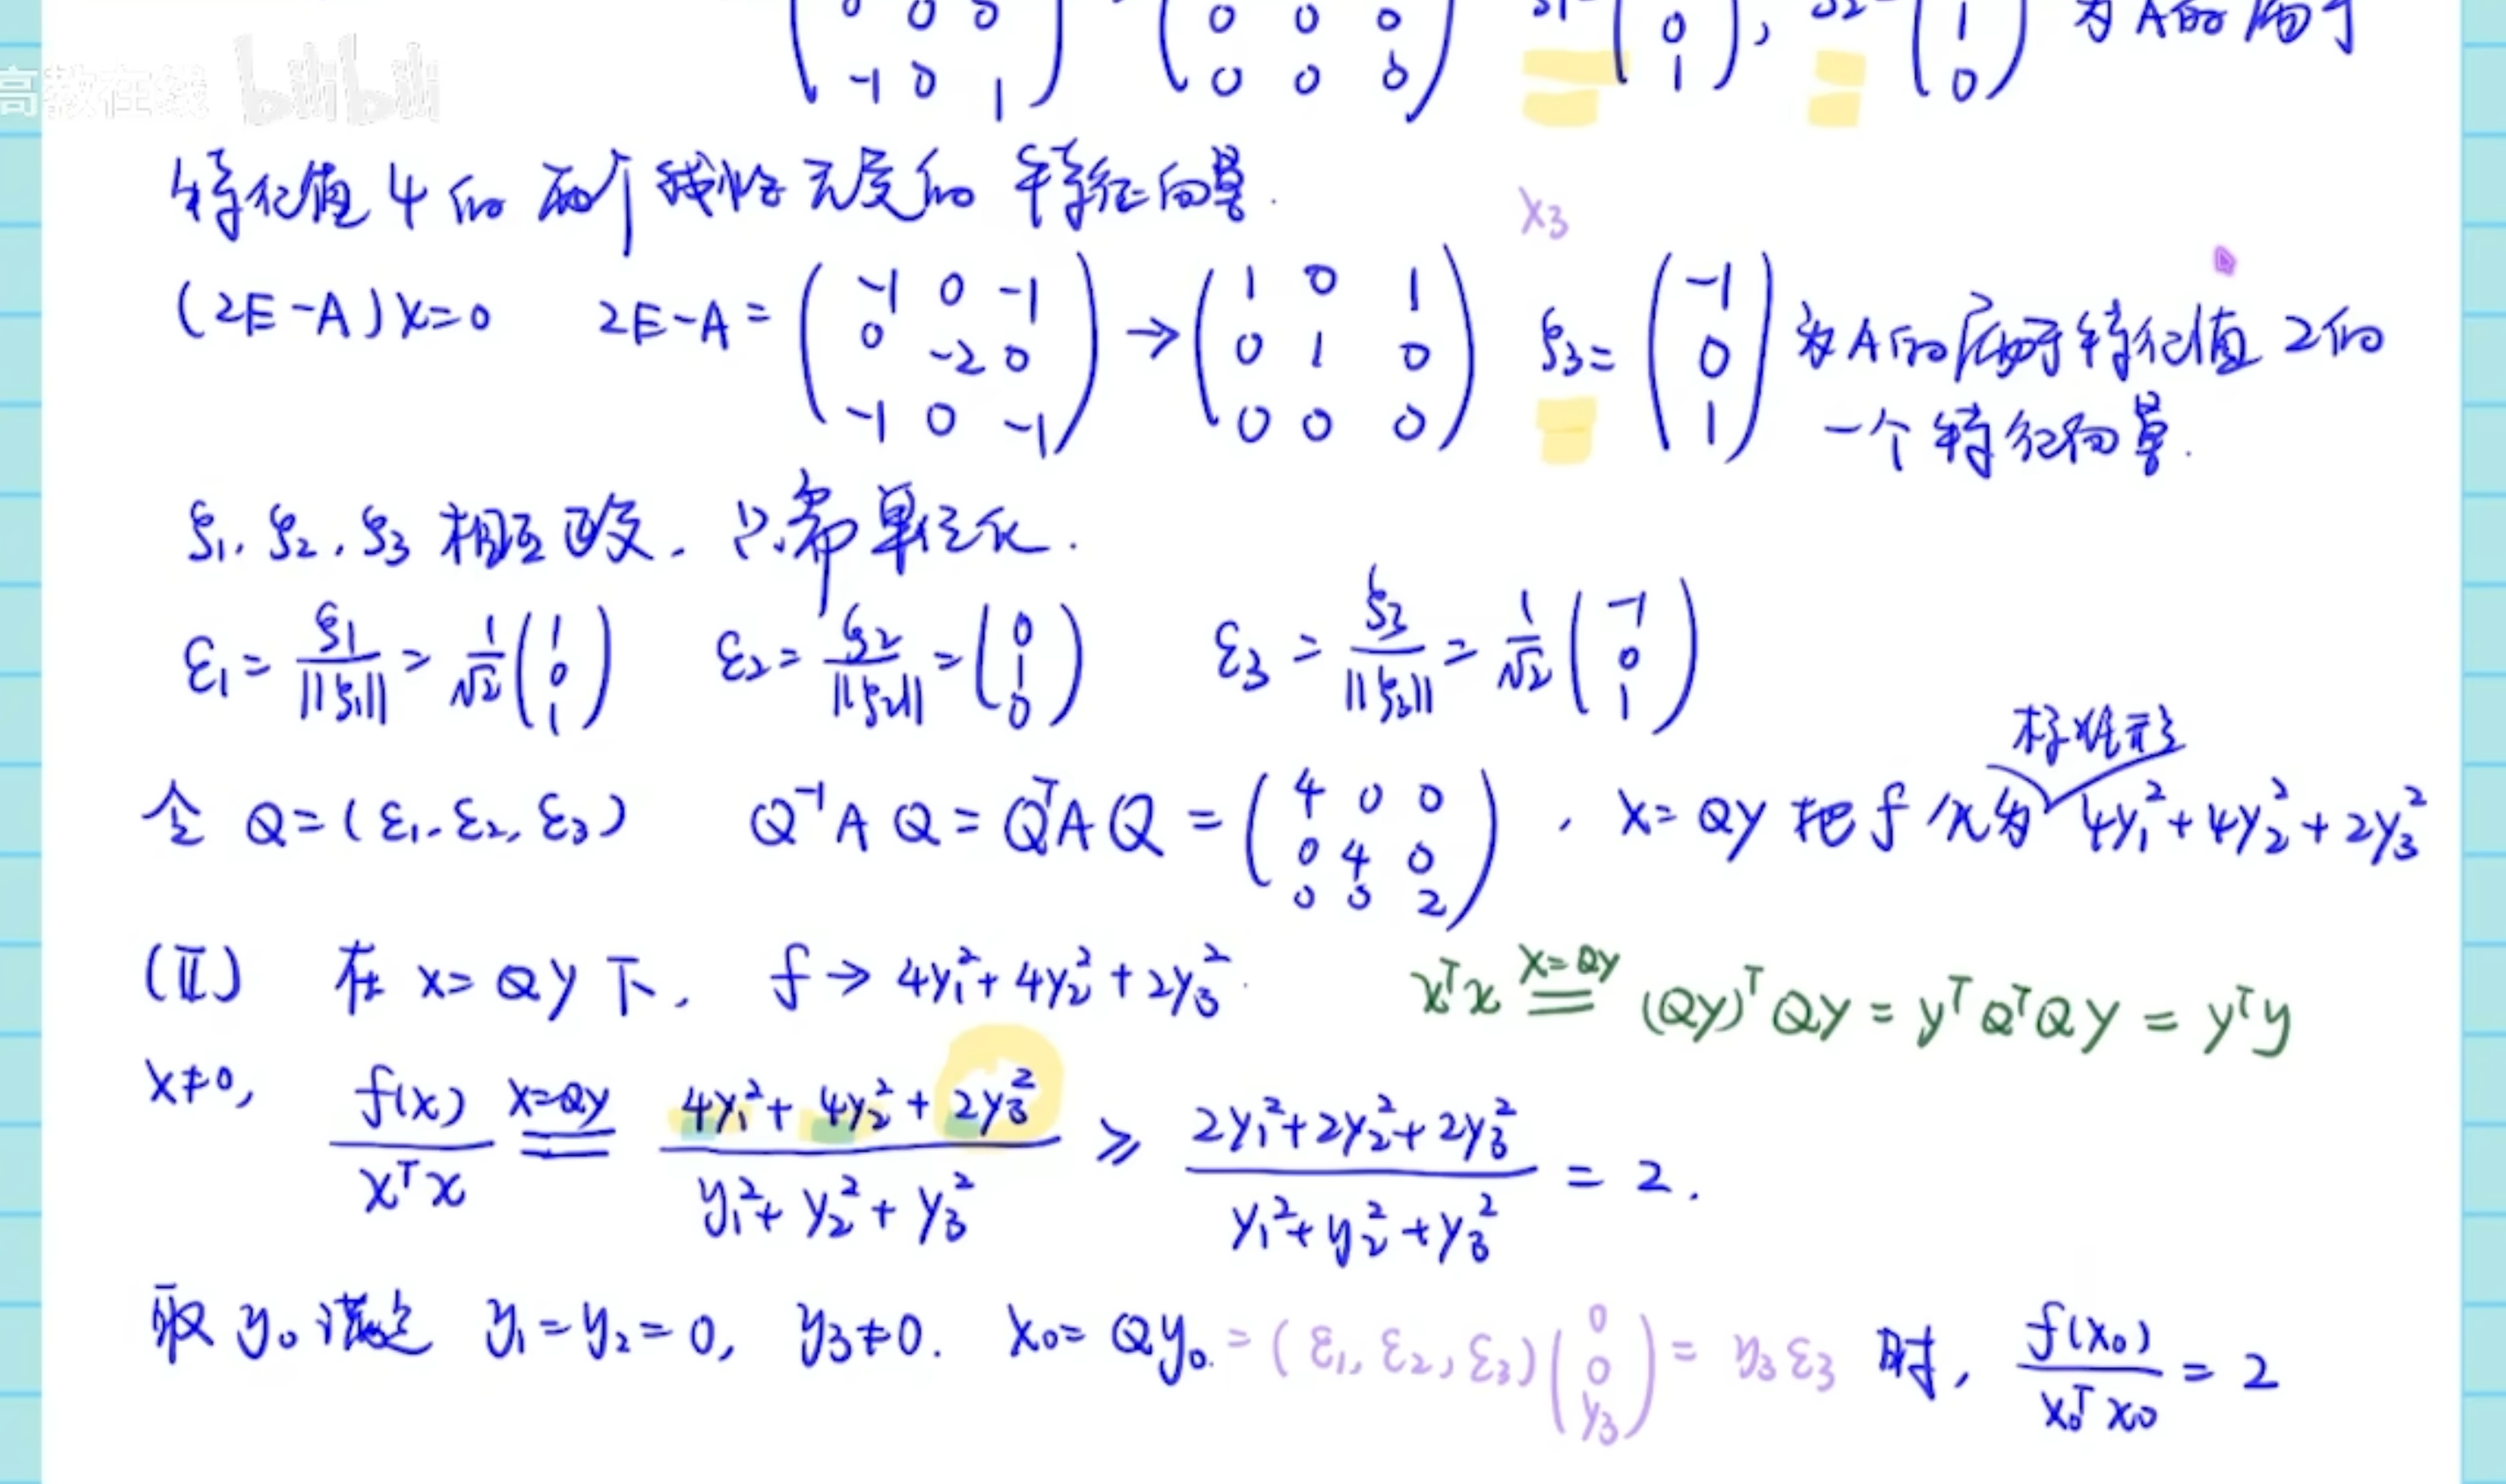 0 0 0 0 0 0 ξ1= 0 , ξ2= 1 为A的属于
-1 0 1 0 0 0 1 0
高教在线 bilibili
特征值 4 的 两个 线性无关的 特征向量.
x3
(2E-A)x=0 2E-A= (-1 0 -1; 0 -2 0; -1 0 -1) → (1 0 1; 0 1 0; 0 0 0) ξ3= (-1; 0; 1) 为A的属于特征值 2的
一个 特征向量.
ξ1, ξ2, ξ3 相互正交. 只需单位化.
ε1 = ξ1/||ξ1|| = 1/√2 (1; 0; 1) ε2 = ξ2/||ξ2|| = (0; 1; 0) ε3 = ξ3/||ξ3|| = 1/√2 (-1; 0; 1)
标准形
令 Q=(ε1, ε2, ε3) Q⁻¹AQ = QᵀAQ = (4 0 0; 0 4 0; 0 0 2) , x=Qy 把 f 化为 4y₁²+4y₂²+2y₃²
(Ⅱ) 在 x=Qy 下, f → 4y₁²+4y₂²+2y₃². xᵀx ==(x=Qy)== (Qy)ᵀQy = yᵀQᵀQy = yᵀy
x≠0, f(x)/xᵀx ==(x=Qy)== (4y₁²+4y₂²+2y₃²)/(y₁²+y₂²+y₃²) ≥ (2y₁²+2y₂²+2y₃²)/(y₁²+y₂²+y₃²) = 2.
取 y₀ 满足 y₁=y₂=0, y₃≠0. x₀=Qy₀. = (ε1, ε2, ε3)(0; 0; y₃) = y₃ε₃ 时, f(x₀)/x₀ᵀx₀ = 2